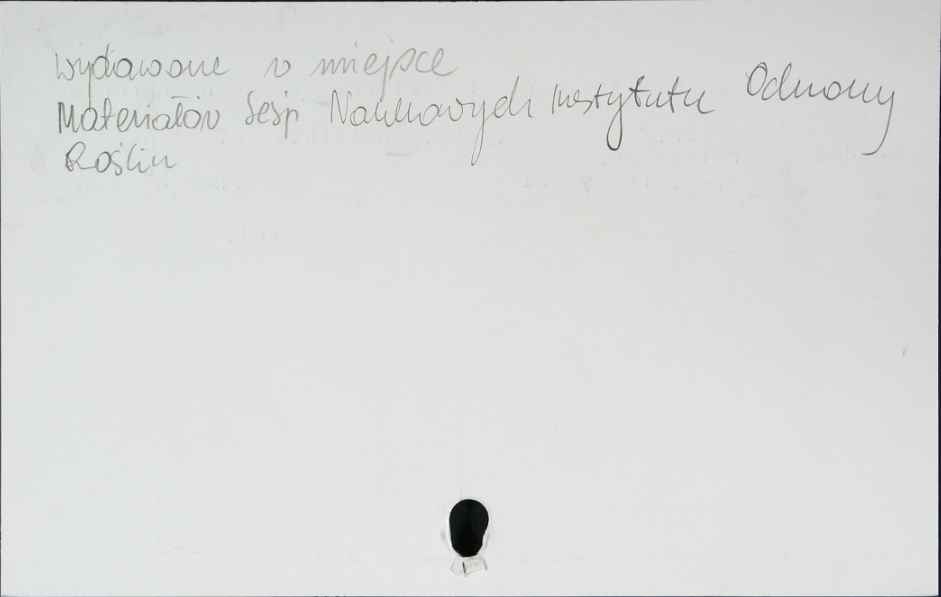 wydawane w miejsce
Materiałów Sesji Naukowych Instytutu Ochrony
Roślin